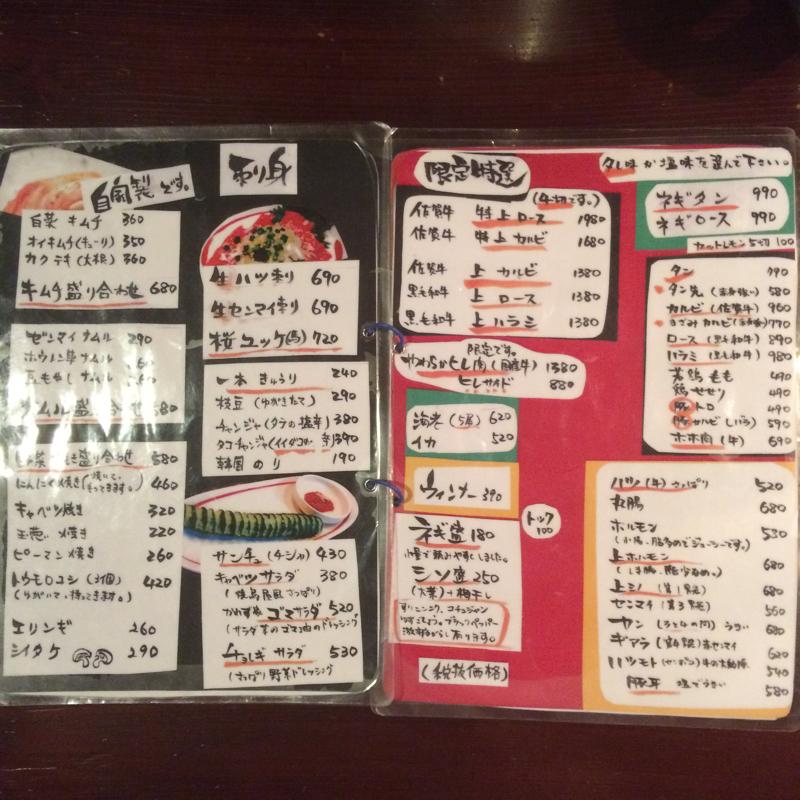 自家製です。
白菜キムチ 360
オイキムチ(キューリ) 350
カクテキ(大根) 360
キムチ盛り合わせ 680
ゼンマイナムル 290
ホウレン草ナムル
豆もやしナムル
ナムル盛り合わせ 580
焼き盛り合わせ 580
にんにく焼き 460
キャベツ焼き 320
玉葱焼き 220
ピーマン焼き 260
トウモロコシ(3個) 420
(ゆがいて、持ってきます。)
エリンギ 260
シイタケ 290
刺り身
生ハツ刺り 690
生センマイ刺り 690
桜ユッケ(馬) 720
一本きゅうり 240
枝豆(ゆがきたて) 290
チャンジャ(タラの塩辛) 380
タコチャンジャ(イイダコの辛) 390
韓国のり 190
サンチュ(チシャ) 430
キャベツサラダ 380
(焼鳥屋風さっぱり)
ゴマサラダ 520
(サラダ菜のゴマ油のドレッシング)
チョレギサラダ 530
(さっぱり野菜ドレッシング)
限定特選
(4切です。)
佐賀牛 特上ロース 1980
佐賀牛 特上カルビ 1680
佐賀牛 上カルビ 1380
黒毛和牛 上ロース 1380
黒毛和牛 上ハラミ 1380
限定です。
やわらかヒレ肉(国産牛) 1380
ヒレサイド 880
海老(5尾) 620
イカ 520
ウィンナー 390
トック 100
ネギ盛 180
小量で頼みやすくしました。
シソ盛 250
(大葉)+梅干し
すりニンニク、コチュジャン
ゆずこしょう、ブラックペッパー
激辛なども有ります。
(税抜価格)
タレ味か塩味を選んで下さい。
ネギタン 990
ネギロース 990
カットレモン5切 100
タン 790
タン先(赤身強い) 580
カルビ(佐賀牛) 960
きざみカルビ 770
ロース(黒毛和牛) 890
ハラミ(黒毛和牛) 980
若鶏もも 490
鶏せせり 490
豚トロ 490
豚カルビ(バラ) 590
ホホ肉(牛) 690
ハツ(牛)さっぱり 520
丸腸 680
ホルモン 530
(小腸、脂多めでジューシーです。)
上ホルモン 680
(しま腸、脂少なめ。)
上ミノ(第1胃) 680
センマイ(第3胃) 560
ヤン(3と4の間)うまい 680
ギアラ(第4胃)赤センマイ 620
ハツモト(コリコリ)牛の大動脈 540
豚耳 塩でうまい 580